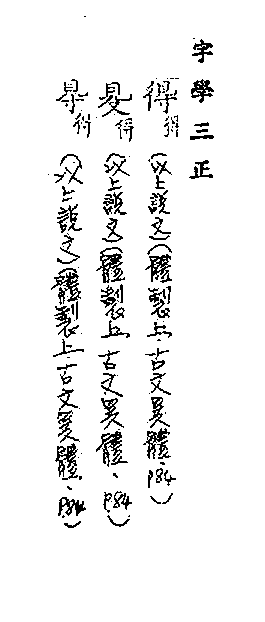 字學三正
得得(以上說文)(體製上·古文異體·P84)
得(以上說文)(體製上·古文異體·P84)
㝵得(以上說文)(體製上·古文異體·P84)